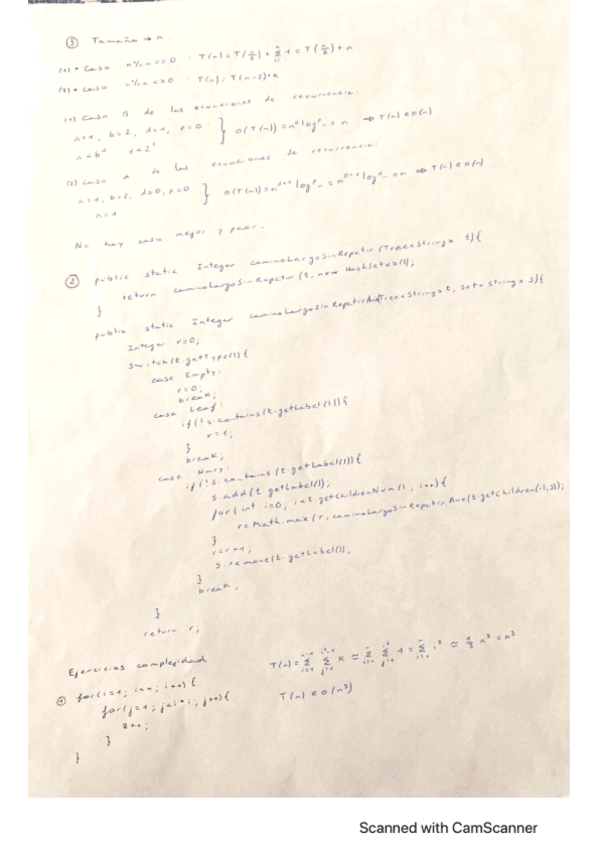 ③ Tamaño → n
(1) • Caso n%2==0 : T(n)=T(n/2)+Σ1=T(n/2)+n
(2) • Caso n%2<>0 : T(n)=T(n-2)+k
(1) Caso B de las ecuaciones de recurrencia:
a=1, b=2, d=1, p=0
a<b^d : 1<2^1 } O(T(n))=n^d log^p n = n → T(n)∈O(n)
(2) Caso A de las ecuaciones de recurrencia:
a=1, b=2, d=0, p=0
a=1 } O(T(n))=n^(d+1) log^p n = n^(0+1) log^0 n = n → T(n)∈O(n)
No hay caso mejor y peor.
② public static Integer caminoLargoSinRepetir(Tree<String> t){
return caminoLargoSinRepetir(t, new HashSet<>());
}
public static Integer caminoLargoSinRepetirAux(Tree<String> t, Set<String> s){
Integer r=0;
switch(t.getType()){
case Empty:
r=0;
break;
case Leaf:
if(!s.contains(t.getLabel())){
r=1;
}
break;
case Nary:
if(!s.contains(t.getLabel())){
s.add(t.getLabel());
for(int i=0; i<t.getChildrenNum(); i++){
r=Math.max(r, caminoLargoSinRepetirAux(t.getChildren(i),s));
}
r=r+1;
s.remove(t.getLabel());
}
break;
}
return r;
Ejercicios complejidad
① for(i=1; i<n; i++){
for(j=1; j<i*i; j++){
z++;
}
}
T(n)=Σ Σ k ≃ Σ Σ 1 = Σ i² ≃ 1/3 n³ ≃ n³
T(n)∈O(n³)
Scanned with CamScanner